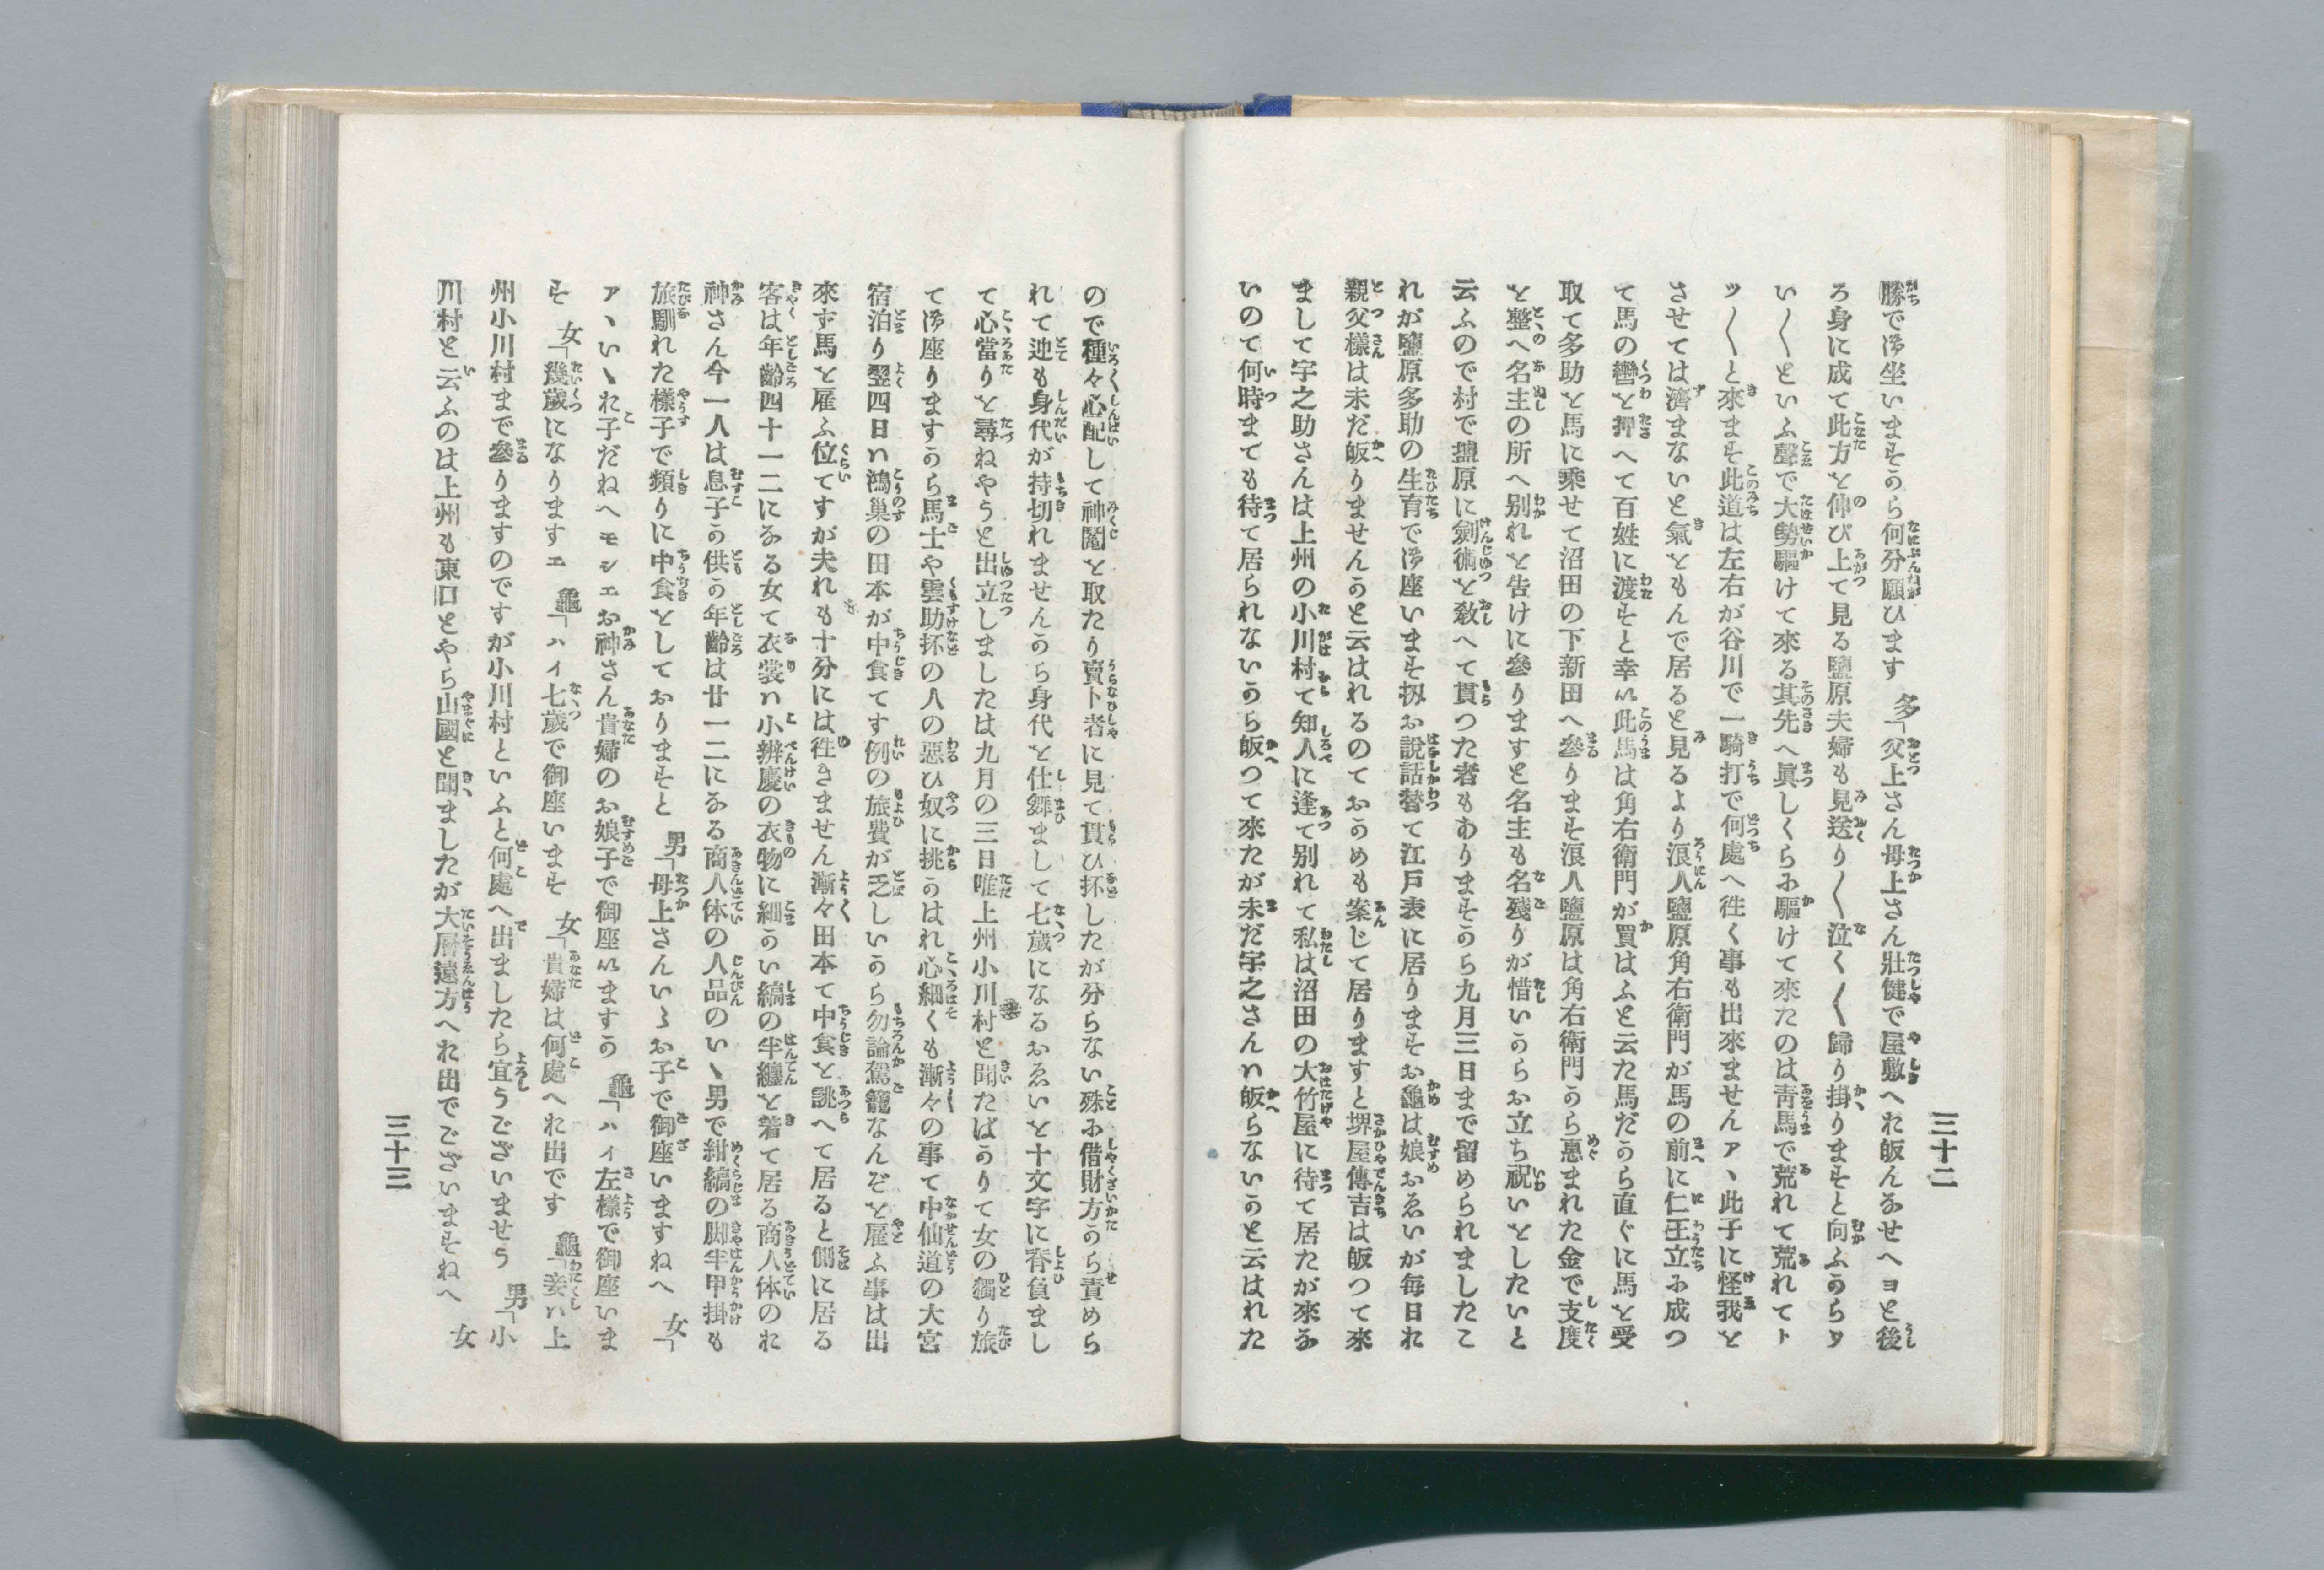 三十二
勝で𛀙座いまそうら何分願ひます 多「父上さん母上さん壯健で屋敷へれ皈んなせへヨと後
ろ身に成て此方と伸び上て見る鹽原夫婦も見送り〳〵泣く〳〵歸り掛りまそと向ふうらタ
い〳〵といふ聲で大勢驅けて來る其先へ眞しくらに驅けて來たのは靑馬で荒れて荒れてト
ツ〳〵と來まそ此道は左右が谷川で一騎打で何處へ徃く事も出來ませんアヽ此子に怪我と
させては濟まないと氣ともんで居ると見るより浪人鹽原角右衛門が馬の前に仁王立に成つ
て馬の轡と押へて百姓に渡そと幸い此馬は角右衛門が買はふと云た馬だうら直ぐに馬と受
取て多助と馬に乘せて沼田の下新田へ參りまそ浪人鹽原は角右衛門うら惠まれた金で支度
と整へ名主の所へ別れと告けに參りますと名主も名殘りが惜いうらお立ち祝いとしたいと
云ふので村で鹽原に劍術と敎へて貰つた者もありまそうら九月三日まで留められましたこ
れが鹽原多助の生育で御座いまそ扨お說話替て江戸表に居りまそお龜は娘おゑいが每日れ
親父樣は未だ皈りませんうと云はれるのておうめも案じて居りますと堺屋傳吉は皈つて來
まして宇之助さんは上州の小川村て知人に逢て別れて私は沼田の大竹屋に待て居たが來な
いので何時まても待て居られないうら皈つて來たが未だ宇之さんハ皈らないうと云はれた
ので種々心配して神鬮と取たり賣卜者に見て貰ひ抔したが分らない殊に借財方うら責めら
れて迚も身代が持切れませんうら身代と仕舞まして七歲になるおゑいと十文字に脊負まし
て心當りと尋ねやうと出立しましたは九月の三日唯上州小川村と聞たばうりて女の獨り旅
て御座りますうら馬士や雲助抔の人の惡ひ奴に挑うはれ心細くも漸々の事て中仙道の大宮
宿泊り翌四日ハ鴻巢の田本が中食てす例の旅費が乏しいうら勿論駕籠なんぞと雇ふ事は出
來ず馬と雇ふ位てすが夫れも十分には徃きません漸々田本て中食と誂へて居ると側に居る
客は年齡四十一二になる女て衣裳ハ小辨慶の衣物に細うい縞の半纏と着て居る商人体のれ
神さん今一人は息子う供う年齡は廿一二になる商人体の人品のいヽ男で紺縞の脚半甲掛も
旅馴れた樣子で頻りに中食としておりまそと 男「母上さんいゝお子で御座いますねへ 女「
アヽいヽれ子だねへモシエお神さん貴婦のお娘子で御座いますう 龜「ハイ左樣で御座いま
そ 女「幾歲になりますエ 龜「ハイ七歲で御座いまそ 女「貴婦は何處へれ出です 龜「妾ハ上
州小川村まで參りますのですが小川村といふと何處へ出ましたら宜うございませう 男「小
川村と云ふのは上州も東口とやら山國と聞ましたが大層遠方へれ出でございまそねへ 女
三十三